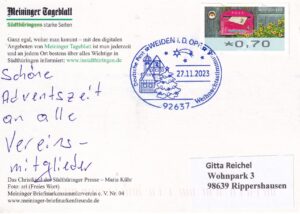 Meininger Tageblatt
Südthüringens starke Seiten
Ganz egal, woher man kommt – mit den digitalen
Angeboten von Meininger Tageblatt ist man jederzeit
und an jedem Ort bestens über alles Wichtige in
Südthüringen informiert: www.insuedthueringen.de
Schöne
Adventszeit
an alle
Vereins-
mitglieder
Das Christkind der Südthüringer Presse – Maria Kühr
Foto: ari (Freies Wort)
Meininger Briefmarkensammlerverein e.V. Nr. 04
www.meininger-briefmarkenfreunde.de
Deutsche Post WEIDEN I. D. OPF
27.11.2023
92637
Weihnachts
*0,70
Gitta Reichel
Wohnpark 3
98639 Rippershausen